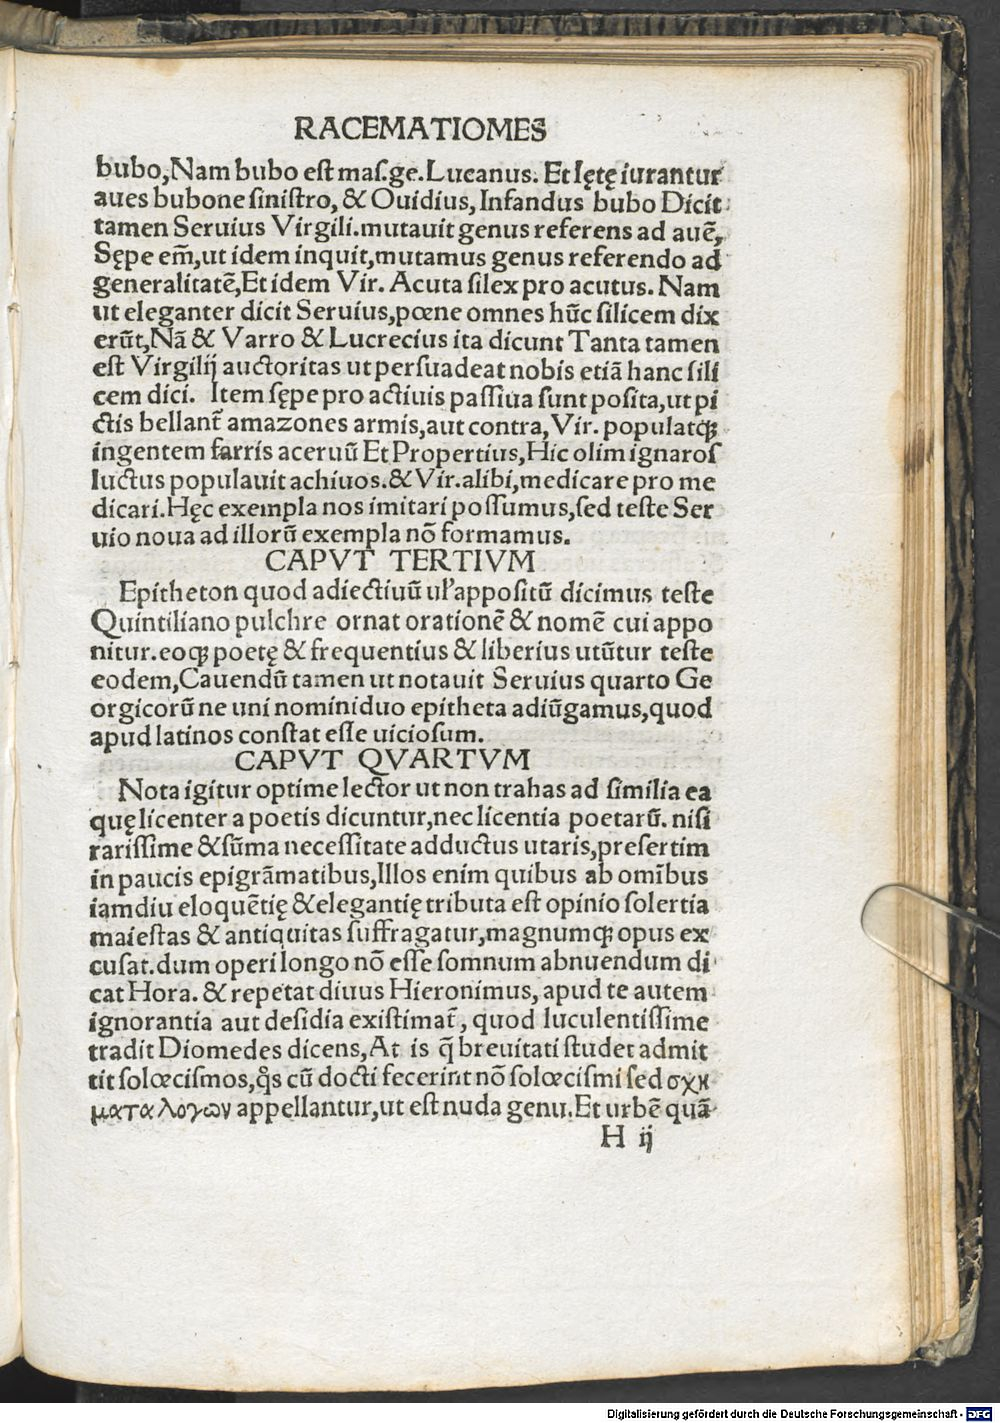 RACEMATIOMES
bubo,Nam bubo est mas.ge.Lucanus. Et lętę iurantur
aues bubone sinistro, & Ouidius, Infandus bubo Dicit
tamen Seruius Virgili.mutauit genus referens ad auē,
Sępe em̄,ut idem inquit,mutamus genus referendo ad
generalitatē,Et idem Vir. Acuta silex pro acutus. Nam
ut eleganter dicit Seruius,pœne omnes hūc silicem dix
erūt,Nā & Varro & Lucrecius ita dicunt Tanta tamen
est Virgilij auctoritas ut persuadeat nobis etiā hanc sili
cem dici. Item sępe pro actiuis passiua sunt posita,ut pi
ctis bellant̄ amazones armis,aut contra, Vir. populatqꝫ
ingentem farris aceruū Et Propertius,Hic olim ignaros
luctus populauit achiuos.& Vir.alibi,medicare pro me
dicari.Hęc exempla nos imitari possumus,sed teste Ser
uio noua ad illorū exempla nō formamus.
CAPVT TERTIVM
Epitheton quod adiectiuū ul' appositū dicimus teste
Quintiliano pulchre ornat orationē & nomē cui appo
nitur.eoqꝫ poetę & frequentius & liberius utūtur teste
eodem,Cauendū tamen ut notauit Seruius quarto Ge
orgicorū ne uni nomini duo epitheta adiūgamus,quod
apud latinos constat esse uiciosum.
CAPVT QVARTVM
Nota igitur optime lector ut non trahas ad similia ea
quę licenter a poetis dicuntur,nec licentia poetarū. nisi
rarissime & sūma necessitate adductus utaris,presertim
in paucis epigrāmatibus,Illos enim quibus ab omībus
iamdiu eloquētię & elegantię tributa est opinio solertia
maiestas & antiquitas suffragatur,magnumqꝫ opus ex
cusat.dum operi longo nō esse somnum abnuendum di
cat Hora. & repetat diuus Hieronimus, apud te autem
ignorantia aut desidia existimat̄, quod luculentissime
tradit Diomedes dicens,At is q̄ breuitati studet admit
tit solœcismos,qͦs cū docti fecerint nō solœcismi sed σχη
ματα λόγων appellantur,ut est nuda genu.Et urbē quā
H ij
Digitalisierung gefördert durch die Deutsche Forschungsgemeinschaft - DFG